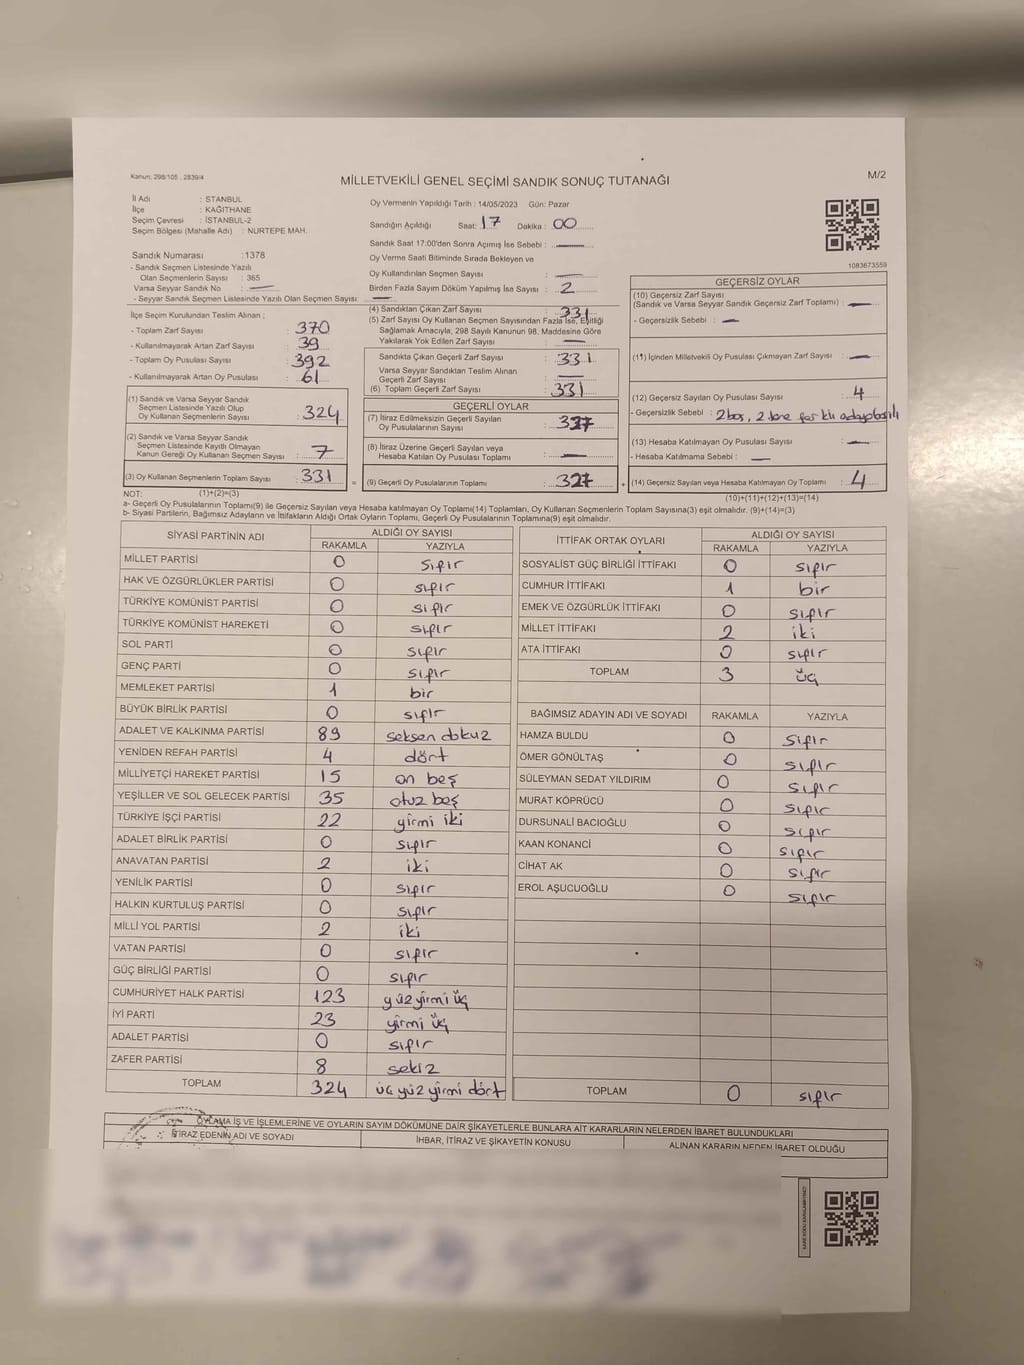 Kanun; 298/105 , 2839/4
MİLLETVEKİLİ GENEL SEÇİMİ SANDIK SONUÇ TUTANAĞI
M/2
İl Adı : İSTANBUL
İlçe : KAĞITHANE
Seçim Çevresi : İSTANBUL-2
Seçim Bölgesi (Mahalle Adı) : NURTEPE MAH.
Sandık Numarası :1378
- Sandık Seçmen Listesinde Yazılı
Olan Seçmenlerin Sayısı : 365
Varsa Seyyar Sandık No :
- Seyyar Sandık Seçmen Listesinde Yazılı Olan Seçmen Sayısı:
İlçe Seçim Kurulundan Teslim Alınan ;
- Toplam Zarf Sayısı : 370
- Kullanılmayarak Artan Zarf Sayısı : 39
- Toplam Oy Pusulası Sayısı : 392
- Kullanılmayarak Artan Oy Pusulası : 61
(1) Sandık ve Varsa Seyyar Sandık
Seçmen Listesinde Yazılı Olup
Oy Kullanan Seçmenlerin Sayısı : 324
(2) Sandık ve Varsa Seyyar Sandık
Seçmen Listesinde Kayıtlı Olmayan
Kanun Gereği Oy Kullanan Seçmen Sayısı : 7
(3) Oy Kullanan Seçmenlerin Toplam Sayısı : 331
(1)+(2)=(3)
Oy Vermenin Yapıldığı Tarih : 14/05/2023 Gün: Pazar
Sandığın Açıldığı Saat: 17 Dakika : 00
Sandık Saat 17.00'den Sonra Açımış İse Sebebi :
Oy Verme Saati Bitiminde Sırada Bekleyen ve
Oy Kullandırılan Seçmen Sayısı :
Birden Fazla Sayım Döküm Yapılmış İse Sayısı : 2
(4) Sandıktan Çıkan Zarf Sayısı : 331
(5) Zarf Sayısı Oy Kullanan Seçmen Sayısından Fazla İse, Eşitliği
Sağlamak Amacıyla, 298 Sayılı Kanunun 98. Maddesine Göre
Yakılarak Yok Edilen Zarf Sayısı :
Sandıkta Çıkan Geçerli Zarf Sayısı : 331
Varsa Seyyar Sandıktan Teslim Alınan
Geçerli Zarf Sayısı :
(6) Toplam Geçerli Zarf Sayısı : 331
GEÇERLİ OYLAR
(7) İtiraz Edilmeksizin Geçerli Sayılan
Oy Pusulalarının Sayısı : 327
(8) İtiraz Üzerine Geçerli Sayılan veya
Hesaba Katılan Oy Pusulası Toplamı :
= (9) Geçerli Oy Pusulalarının Toplamı : 327 +
1083673559
GEÇERSİZ OYLAR
(10) Geçersiz Zarf Sayısı
(Sandık ve Varsa Seyyar Sandık Geçersiz Zarf Toplamı) :
- Geçersizlik Sebebi :
(11) İçinden Milletvekili Oy Pusulası Çıkmayan Zarf Sayısı :
(12) Geçersiz Sayılan Oy Pusulası Sayısı : 4
- Geçersizlik Sebebi : 2 boş, 2 tane farklı
(13) Hesaba Katılmayan Oy Pusulası Sayısı :
- Hesaba Katılmama Sebebi :
(14) Geçersiz Sayılan veya Hesaba Katılmayan Oy Toplamı : 4
(10)+(11)+(12)+(13)=(14)
NOT:
a- Geçerli Oy Pusulalarının Toplamı(9) ile Geçersiz Sayılan veya Hesaba Katılmayan Oy Toplamı(14) Toplamları, Oy Kullanan Seçmenlerin Toplam Sayısına(3) eşit olmalıdır. (9)+(14)=(3)
b- Siyasi Partilerin, Bağımsız Adayların ve İttifakların Aldığı Ortak Oyların Toplamı, Geçerli Oy Pusulalarının Toplamına(9) eşit olmalıdır.
SİYASİ PARTİNİN ADI ALDIĞI OY SAYISI
RAKAMLA YAZIYLA
MİLLET PARTİSİ 0 sıfır
HAK VE ÖZGÜRLÜKLER PARTİSİ 0 sıfır
TÜRKİYE KOMÜNİST PARTİSİ 0 sıfır
TÜRKİYE KOMÜNİST HAREKETİ 0 sıfır
SOL PARTİ 0 sıfır
GENÇ PARTİ 0 sıfır
MEMLEKET PARTİSİ 1 bir
BÜYÜK BİRLİK PARTİSİ 0 sıfır
ADALET VE KALKINMA PARTİSİ 89 seksen dokuz
YENİDEN REFAH PARTİSİ 4 dört
MİLLİYETÇİ HAREKET PARTİSİ 15 on beş
YEŞİLLER VE SOL GELECEK PARTİSİ 35 otuz beş
TÜRKİYE İŞÇİ PARTİSİ 22 yirmi iki
ADALET BİRLİK PARTİSİ 0 sıfır
ANAVATAN PARTİSİ 2 iki
YENİLİK PARTİSİ 0 sıfır
HALKIN KURTULUŞ PARTİSİ 0 sıfır
MİLLİ YOL PARTİSİ 2 iki
VATAN PARTİSİ 0 sıfır
GÜÇ BİRLİĞİ PARTİSİ 0 sıfır
CUMHURİYET HALK PARTİSİ 123 yüz yirmi üç
İYİ PARTİ 23 yirmi üç
ADALET PARTİSİ 0 sıfır
ZAFER PARTİSİ 8 sekiz
TOPLAM 324 üç yüz yirmi dört
İTTİFAK ORTAK OYLARI ALDIĞI OY SAYISI
RAKAMLA YAZIYLA
SOSYALİST GÜÇ BİRLİĞİ İTTİFAKI 0 sıfır
CUMHUR İTTİFAKI 1 bir
EMEK VE ÖZGÜRLÜK İTTİFAKI 0 sıfır
MİLLET İTTİFAKI 2 iki
ATA İTTİFAKI 0 sıfır
TOPLAM 3 üç
BAĞIMSIZ ADAYIN ADI VE SOYADI RAKAMLA YAZIYLA
HAMZA BULDU 0 sıfır
ÖMER GÖNÜLTAŞ 0 sıfır
SÜLEYMAN SEDAT YILDIRIM 0 sıfır
MURAT KÖPRÜCÜ 0 sıfır
DURSUNALİ BACIOĞLU 0 sıfır
KAAN KONANCİ 0 sıfır
CİHAT AK 0 sıfır
EROL AŞUCUOĞLU 0 sıfır
TOPLAM 0 sıfır
OYLAMA İŞ VE İŞLEMLERİNE VE OYLARIN SAYIM DÖKÜMÜNE DAİR ŞİKAYETLERLE BUNLARA AİT KARARLARIN NELERDEN İBARET BULUNDUKLARI
İTİRAZ EDENİN ADI VE SOYADI İHBAR, İTİRAZ VE ŞİKAYETİN KONUSU ALINAN KARARIN NEDEN İBARET OLDUĞU